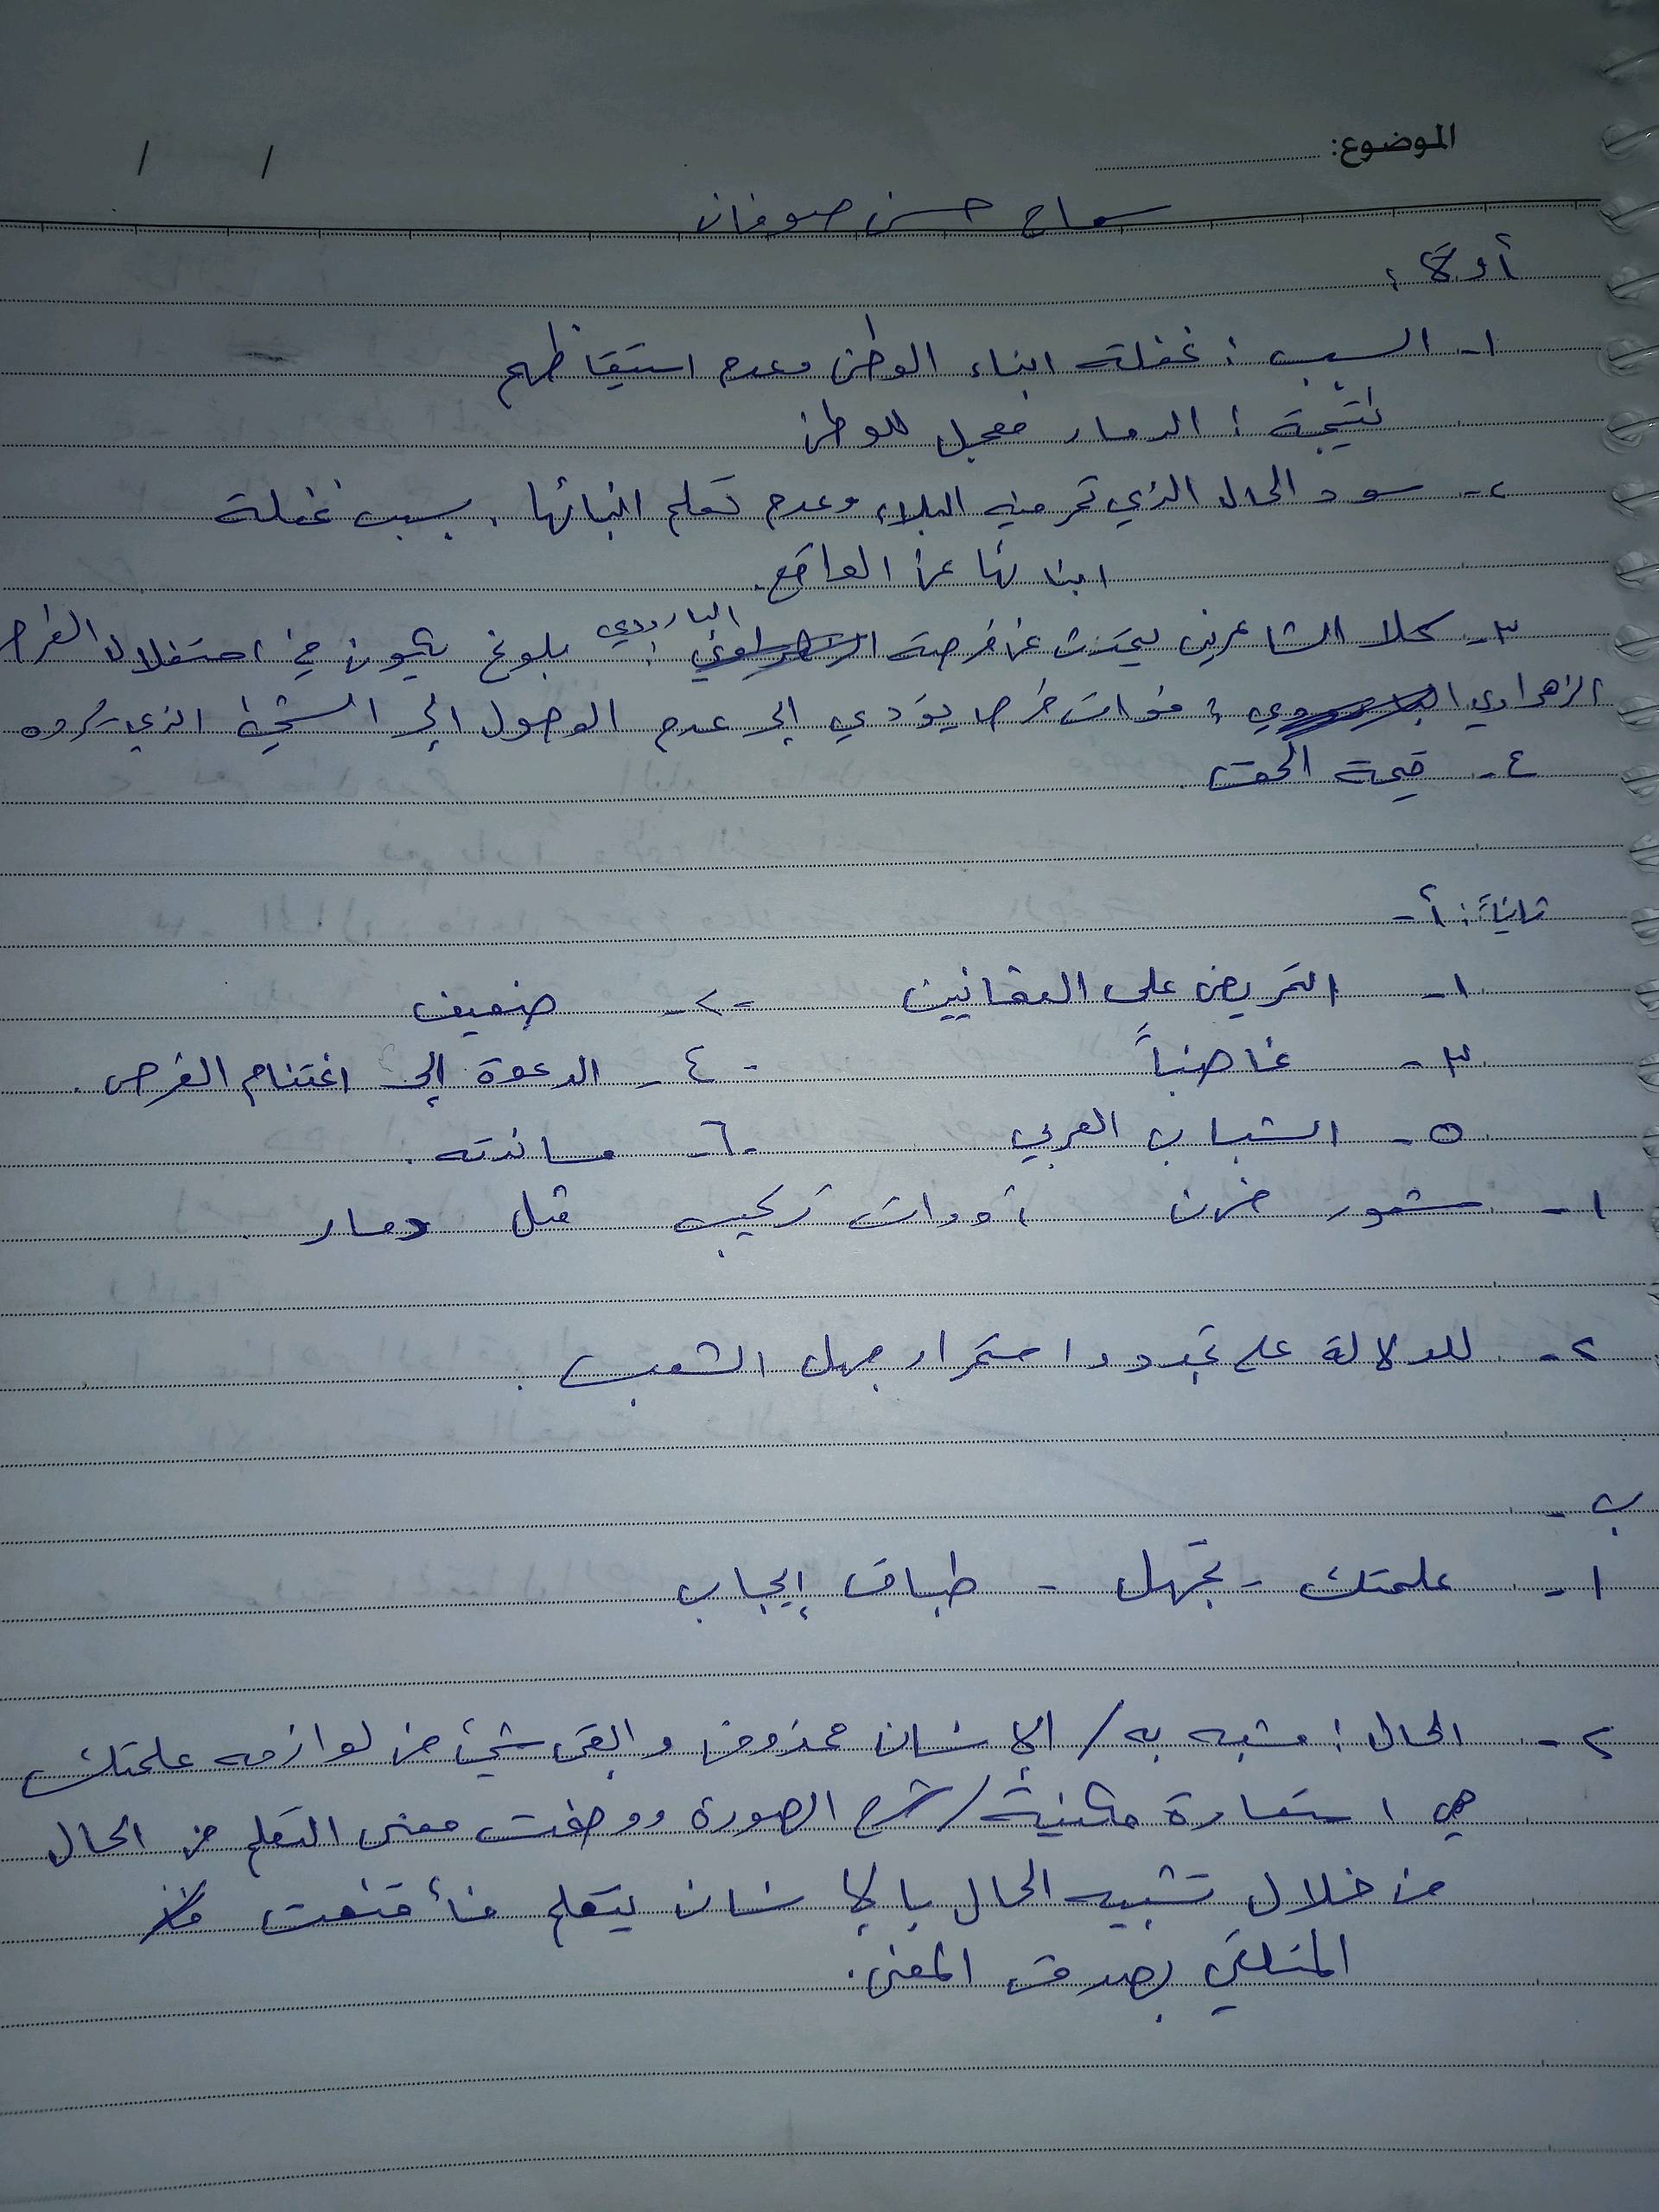 الموضوع:
/ /
سماح حسن صوفان
أولاً:
١- السبب: غفلته ابناء الوطن وعدم استيقاظهم
نتيجة: الدمار معجل للوطن
٢- سود الحال الذي تمر منيه البلاء وعدم تعلم ابنائها. بسبب غفلة
ابنائها عن الواقع.
٣- كلا الشاعرين يتحدث عن فرصة البارودي: بلوغ يكون في استغلال الفرص
الزهاوي: فوات فرص يؤدي إلى عدم الوصول إلى الشيء الذي نريده
٤- قيمة الحق.
ثانياً: أ-
١- التحريض على العثمانيين ٢- ضعيف
٣- غاضباً ٤- الدعوة إلى اغتنام الفرص.
٥- الشباب العربي ٦- مساندته.
١- شعور حزن أدوات تركيب مثل دمار.
٢- للدلالة على تجدد واستمرار جهل الشعب.
ب-
١- علمتك - تجهل - طباق إيجاب
٢- الحال: مشبه به / الإنسان محذوف وابقى شيئ من لوازمه علمتك
هي استعارة مكنية / شرح الصورة ووضحت معنى التعلم من الحال
من خلال تشبيه الحال بالإنسان يتعلم فأقنعت
المتلقي بصدق المعنى.